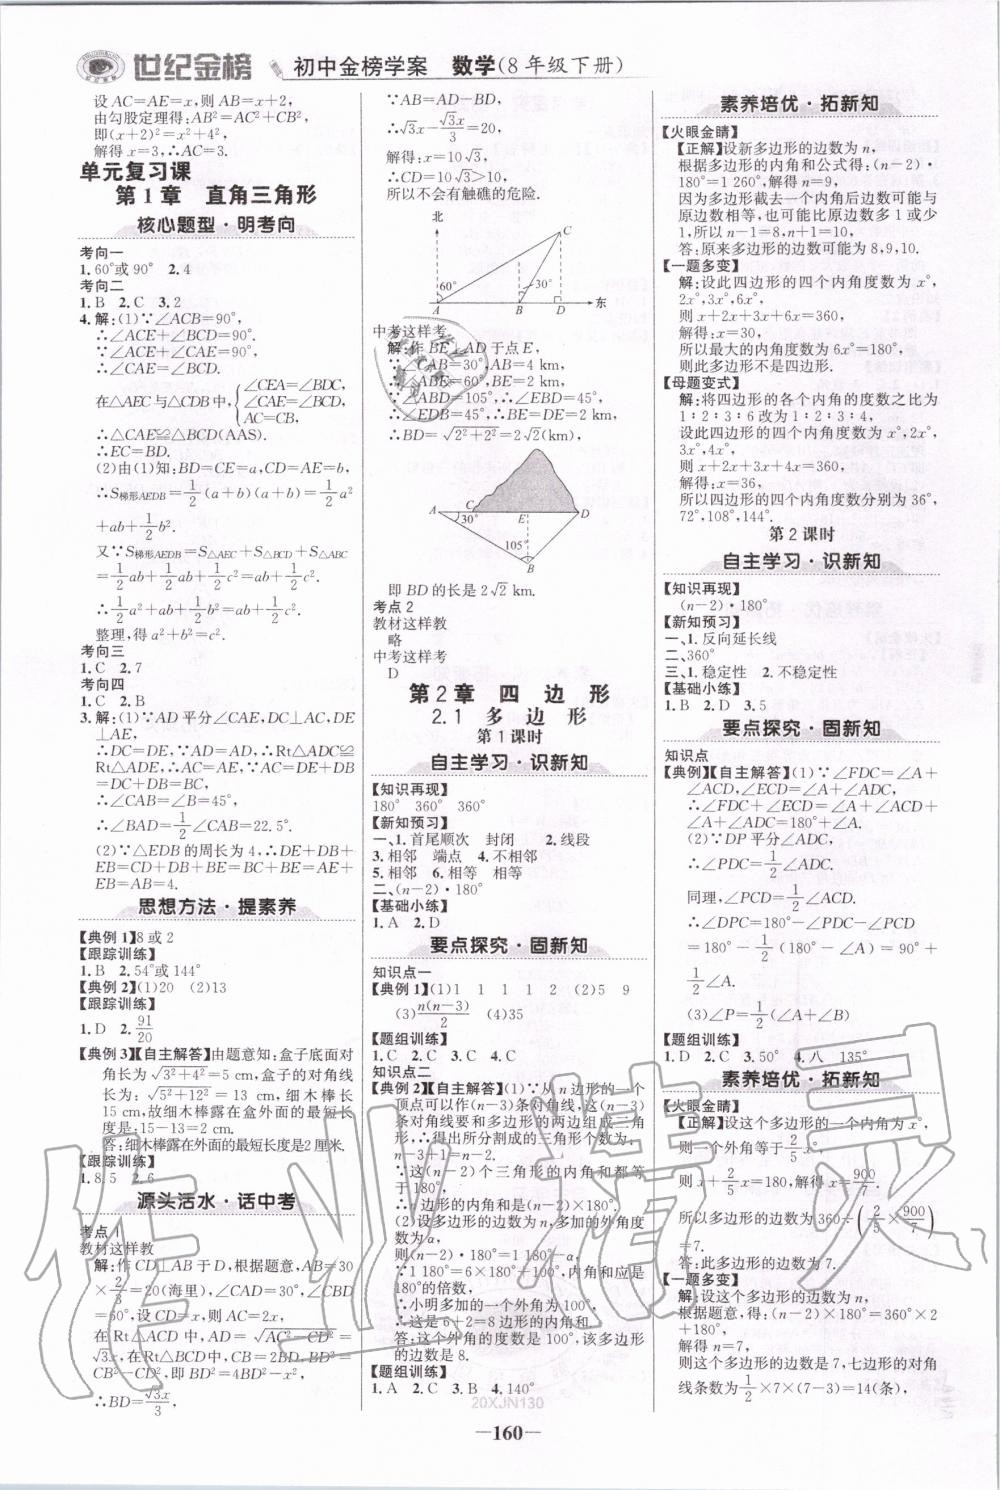 世纪金榜 初中金榜学案 数学(8年级下册)
设AC=AE=x,则AB=x+2,
由勾股定理得:AB²=AC²+CB²,
即(x+2)²=x²+4²,
解得x=3,∴AC=3.
单元复习课
第1章 直角三角形
核心题型·明考向
考向一
1.60°或90° 2.4
考向二
1.B 2.C 3.2
4.解:(1)∵∠ACB=90°,
∴∠ACE+∠BCD=90°.
∵∠ACE+∠CAE=90°,
∴∠CAE=∠BCD.
在△AEC与△CDB中,{∠CEA=∠BDC, ∠CAE=∠BCD, AC=BC,
∴△CAE≌△BCD(AAS).
∴EC=BD.
(2)由(1)知:BD=CE=a,CD=AE=b,
∴S梯形AEDB=1/2(a+b)(a+b)=1/2a²
+ab+1/2b².
又∵S梯形AEDB=S△AEC+S△BCD+S△ABC
=1/2ab+1/2ab+1/2c²=ab+1/2c².
∴1/2a²+ab+1/2b²=ab+1/2c².
整理,得a²+b²=c².
考向三
1.C 2.7
考向四
1.C 2.B
3.解:(1)∵AD平分∠CAE,DC⊥AC,DE
⊥AE,
∴DC=DE,∵AD=AD,∴Rt△ADC≌
Rt△ADE,∴AC=AE,∵DE+DB=
DC+DB=BC=AC,
∴∠CAB=∠B=45°,
∴∠BAD=1/2∠CAB=22.5°.
(2)∵△EDB的周长为4,∴DE+DB+
EB=CD+DB+BE=BC+BE=AE+
BE=AB=4.
思想方法·提素养
【典例1】8或2
【跟踪训练】
1.B 2.54°或144°
【典例2】(1)20 (2)13
【跟踪训练】
1.D 2.91/20
【典例3】【自主解答】由题意知:盒子底面对
角线长为√(3²+4²)=5 cm,盒子的对角线
长为:√(5²+12²)=13 cm,细木棒长
15 cm,故细木棒露在盒外面的最短长
度是:15-13=2 cm.
答:细木棒露在外面的最短长度是2厘米.
【跟踪训练】
1.8.5 2.6
源头活水·话中考
考点1
教材这样教
解:作CD⊥AB于D,根据题意,AB=30
×2/3=20(海里),∠CAD=30°,∠CBD
=60°,设CD=x,则AC=2x,
在Rt△ACD中,AD=√(AC²-CD²)=
√3x,在Rt△BCD中,BC=2BD,BD²=
CB²-CD²,即BD²=4BD²-x²,
∴BD=√3x/3,
∵AB=AD-BD,
∴√3x-√3x/3=20,
解得:x=10√3,
∴CD=10√3>10,
所以不会有触礁的危险.
北
C
60°
30°
A B D 东
中考这样考
解:作BE⊥AD于点E,
∵∠CAB=30°,AB=4 km,
∴∠ABE=60°,BE=2 km,
∵∠ABD=105°,∴∠EBD=45°,
∴∠EDB=45°,∴BE=DE=2 km,
∴BD=√(2²+2²)=2√2(km).
A C E D
30°
105°
B
即BD的长是2√2 km.
考点2
教材这样教
略
中考这样考
D
第2章 四边形
2.1 多边形
第1课时
自主学习·识新知
【知识再现】
180° 360° 360°
【新知预习】
一、1.首尾顺次 封闭 2.线段
3.相邻 端点 4.不相邻
5.相邻 6.相等 相等
二、(n-2)·180°
【基础小练】
1.A 2.D
要点探究·固新知
知识点一
【典例1】(1)1 1 1 2 (2)5 9
(3)n(n-3)/2 (4)35
【题组训练】
1.C 2.C 3.C
知识点二
【典例2】【自主解答】(1)∵从n边形的一个
顶点可以作(n-3)条对角线,这(n-3)
条对角线要和多边形的两边组成三角
形,∴得出所分割成的三角形个数为n-
3+1=n-2;
∵这(n-2)个三角形的内角和都等
于180°,
∴n边形的内角和是(n-2)×180°.
(2)设多边形的边数为n,多加的外角度
数为α,
则(n-2)·180°=1 180°-α,
∵1 180°=6×180°+100°,内角和应
是180°的倍数,
∴小明多加的一个外角为100°,
∴这是6+2=8边形的内角和.
答:这个外角的度数是100°,该多边形
的边数是8.
【题组训练】
1.A 2.C 3.B 4.140°
素养培优·拓新知
【火眼金睛】
【正解】设新多边形的边数为n,
根据多边形的内角和公式得:(n-2)·
180°=1 260°,解得n=9.
因为多边形截去一个内角后边数可能与
原边数相等,也可能比原边数多1或少
1,所以n-1=8,n+1=10.
答:原来多边形的边数可能为8,9,10.
【一题多变】
解:设此四边形的四个内角度数为x°,
2x°,3x°,6x°,
则x+2x+3x+6x=360,
解得:x=30,
所以最大的内角度数为6x°=180°,
则此多边形不是四边形.
【母题变式】
解:将四边形的各个内角的度数之比为
1∶2∶3∶6改为1∶2∶3∶4,
设此四边形的四个内角度数为x°,2x°,
3x°,4x°,
则x+2x+3x+4x=360,
解得:x=36,
所以四边形的四个内角度数分别为36°,
72°,108°,144°.
第2课时
自主学习·识新知
【知识再现】
(n-2)·180°
【新知预习】
一、1.反向延长线
二、360°
三、1.稳定性 2.不稳定性
【基础小练】
1.B 2.D 3.5
要点探究·固新知
知识点
【典例】【自主解答】(1)∵∠FDC=∠A+
∠ACD,∠ECD=∠A+∠ADC,
∴∠FDC+∠ECD=∠A+∠ACD+
∠A+∠ADC=180°+∠A.
(2)∵DP平分∠ADC,
∴∠PDC=1/2∠ADC.
同理,∠PCD=1/2∠ACD,
∴∠DPC=180°-∠PDC-∠PCD
=180°-1/2(180°-∠A)=90°+
1/2∠A.
(3)∠P=1/2(∠A+∠B)
【题组训练】
1.D 2.C 3.50° 4.八 135°
素养培优·拓新知
【火眼金睛】
【正解】设这个多边形的一个内角为x°,
则一个外角等于2/5x°,
则x+2/5x=180,解得x=900/7,
所以多边形的边数为360÷(2/5×900/7)
=7.
答:此多边形的边数为7.
【一题多变】
解:设这个多边形的边数为n,
根据题意,得:(n-2)×180°=360°×2
+180°,
解得n=7,
则这个多边形的边数是7,七边形的对角
线条数为1/2×7×(7-3)=14(条),
20XJN130
—160—
作业精灵